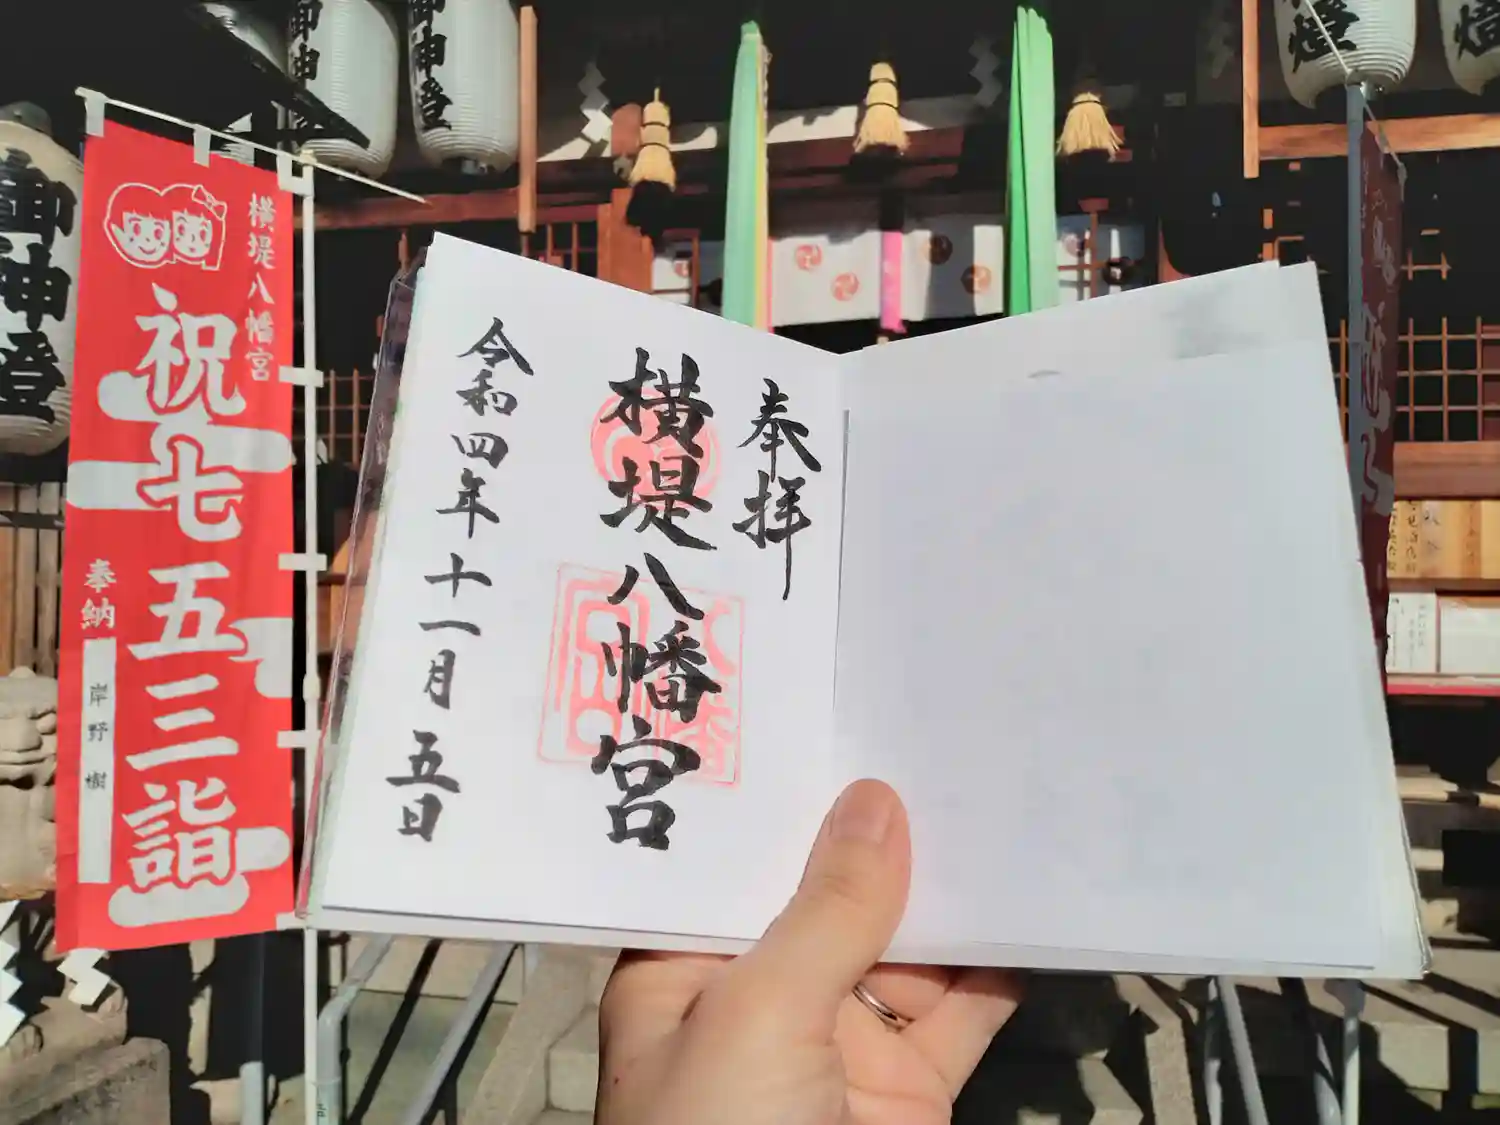 奉拝
横堤八幡宮
令和四年十一月五日
横堤八幡宮
祝七五三詣
奉納
岸野樹
御神燈
御神燈
御神燈
燈
燈